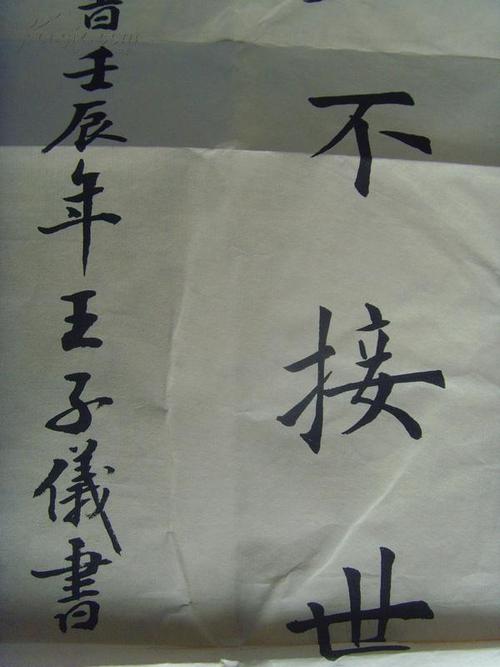 不接世
壬辰年王子儀書